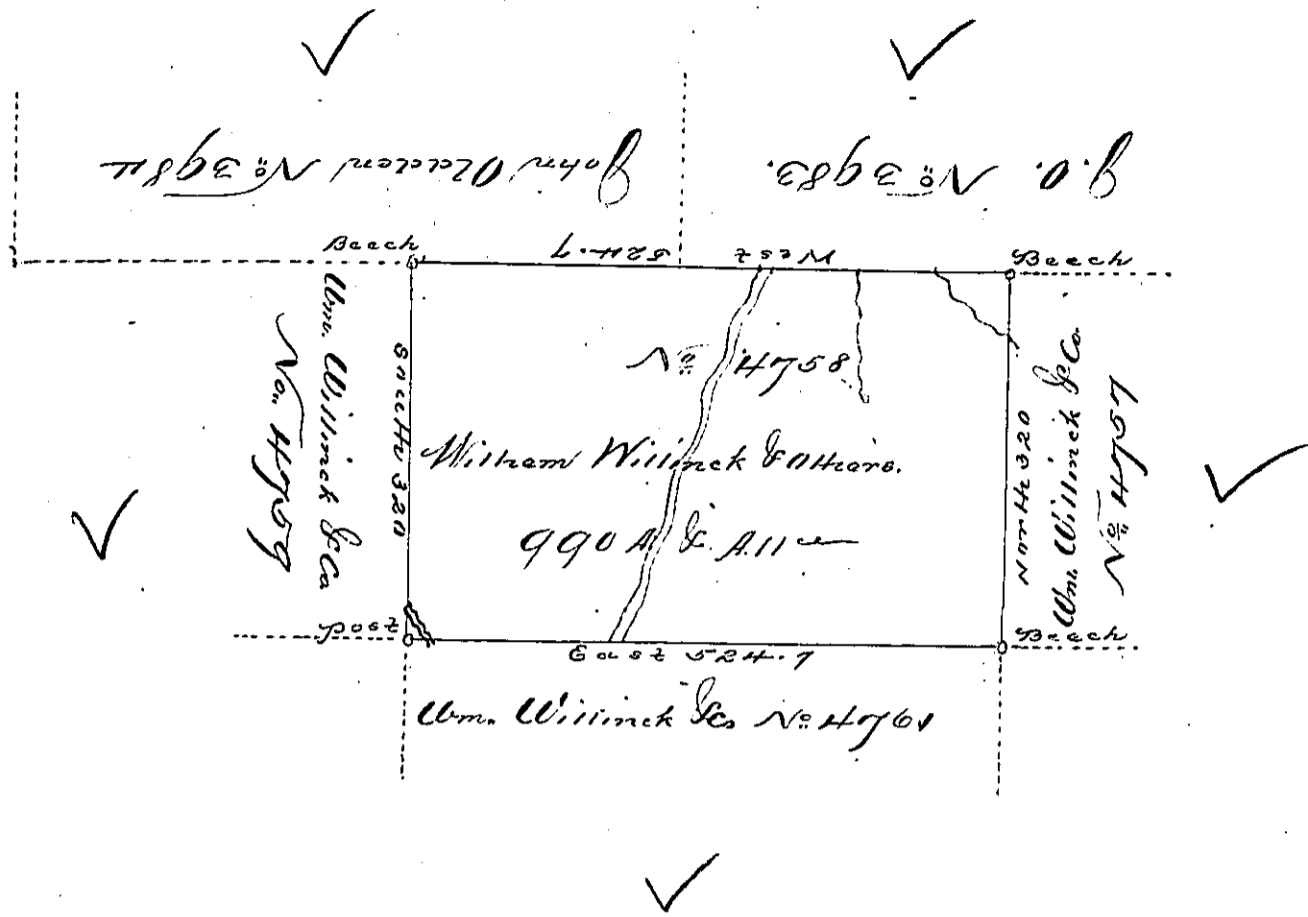 John Olden No. 3984
J.O. No. 3983.
Beech
524.7
West
Beech
Wm. Willinck & Co
No. 4759
South 320
No. 4758
William Willinck & Others.
990 A & All ce
North 320
Wm. Willinck & Co.
No. 4757
Post
East 524.7
Beech
Wm. Willinck & Co No. 4761